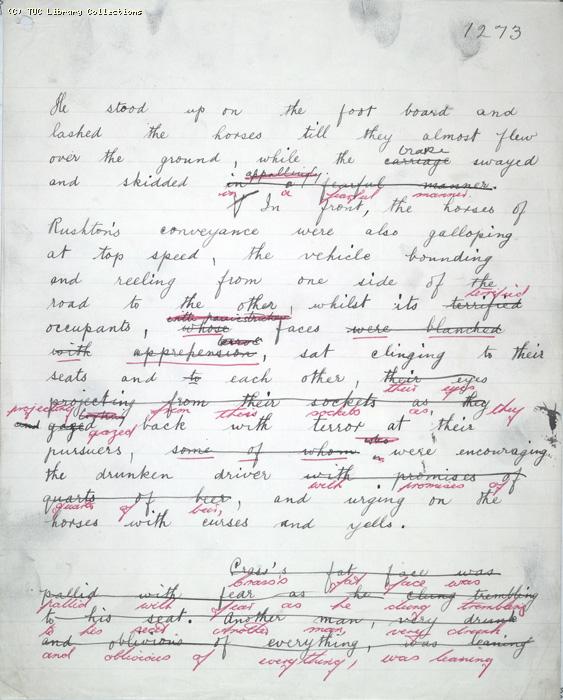 (C) TUC Library Collections
1273
He stood up on the foot board and
lashed the horses till they almost flew
brake
over the ground, while the carriage swayed
appalling
and skidded in a fearful manner.
in a fearful manner.
In front, the horses of
Rushton's conveyance were also galloping
at top speed, the vehicle bounding
and reeling from one side of the
terrified
road to the other, whilst its terrified
occupants, whose faces were blanched
terror
with apprehension, sat clinging to their
seats and to each other, their eyes
their eyes
projecting from their sockets as they
projecting from their sockets as, they
and gazed back with terror at their
gazed
who
pursuers, some of whom were encouraging
the drunken driver with promises of
with promises of
quarts of beer, and urging on the
quarts of beer,
horses with curses and yells.
Crass's fat face was
Crass's fat face was
pallid with fear as he clung trembling
pallid with fear as he clung trembling
to his seat. Another man, very drunk
to his seat. Another man, very drunk
and oblivious of everything, was leaning
and oblivious of everything, was leaning